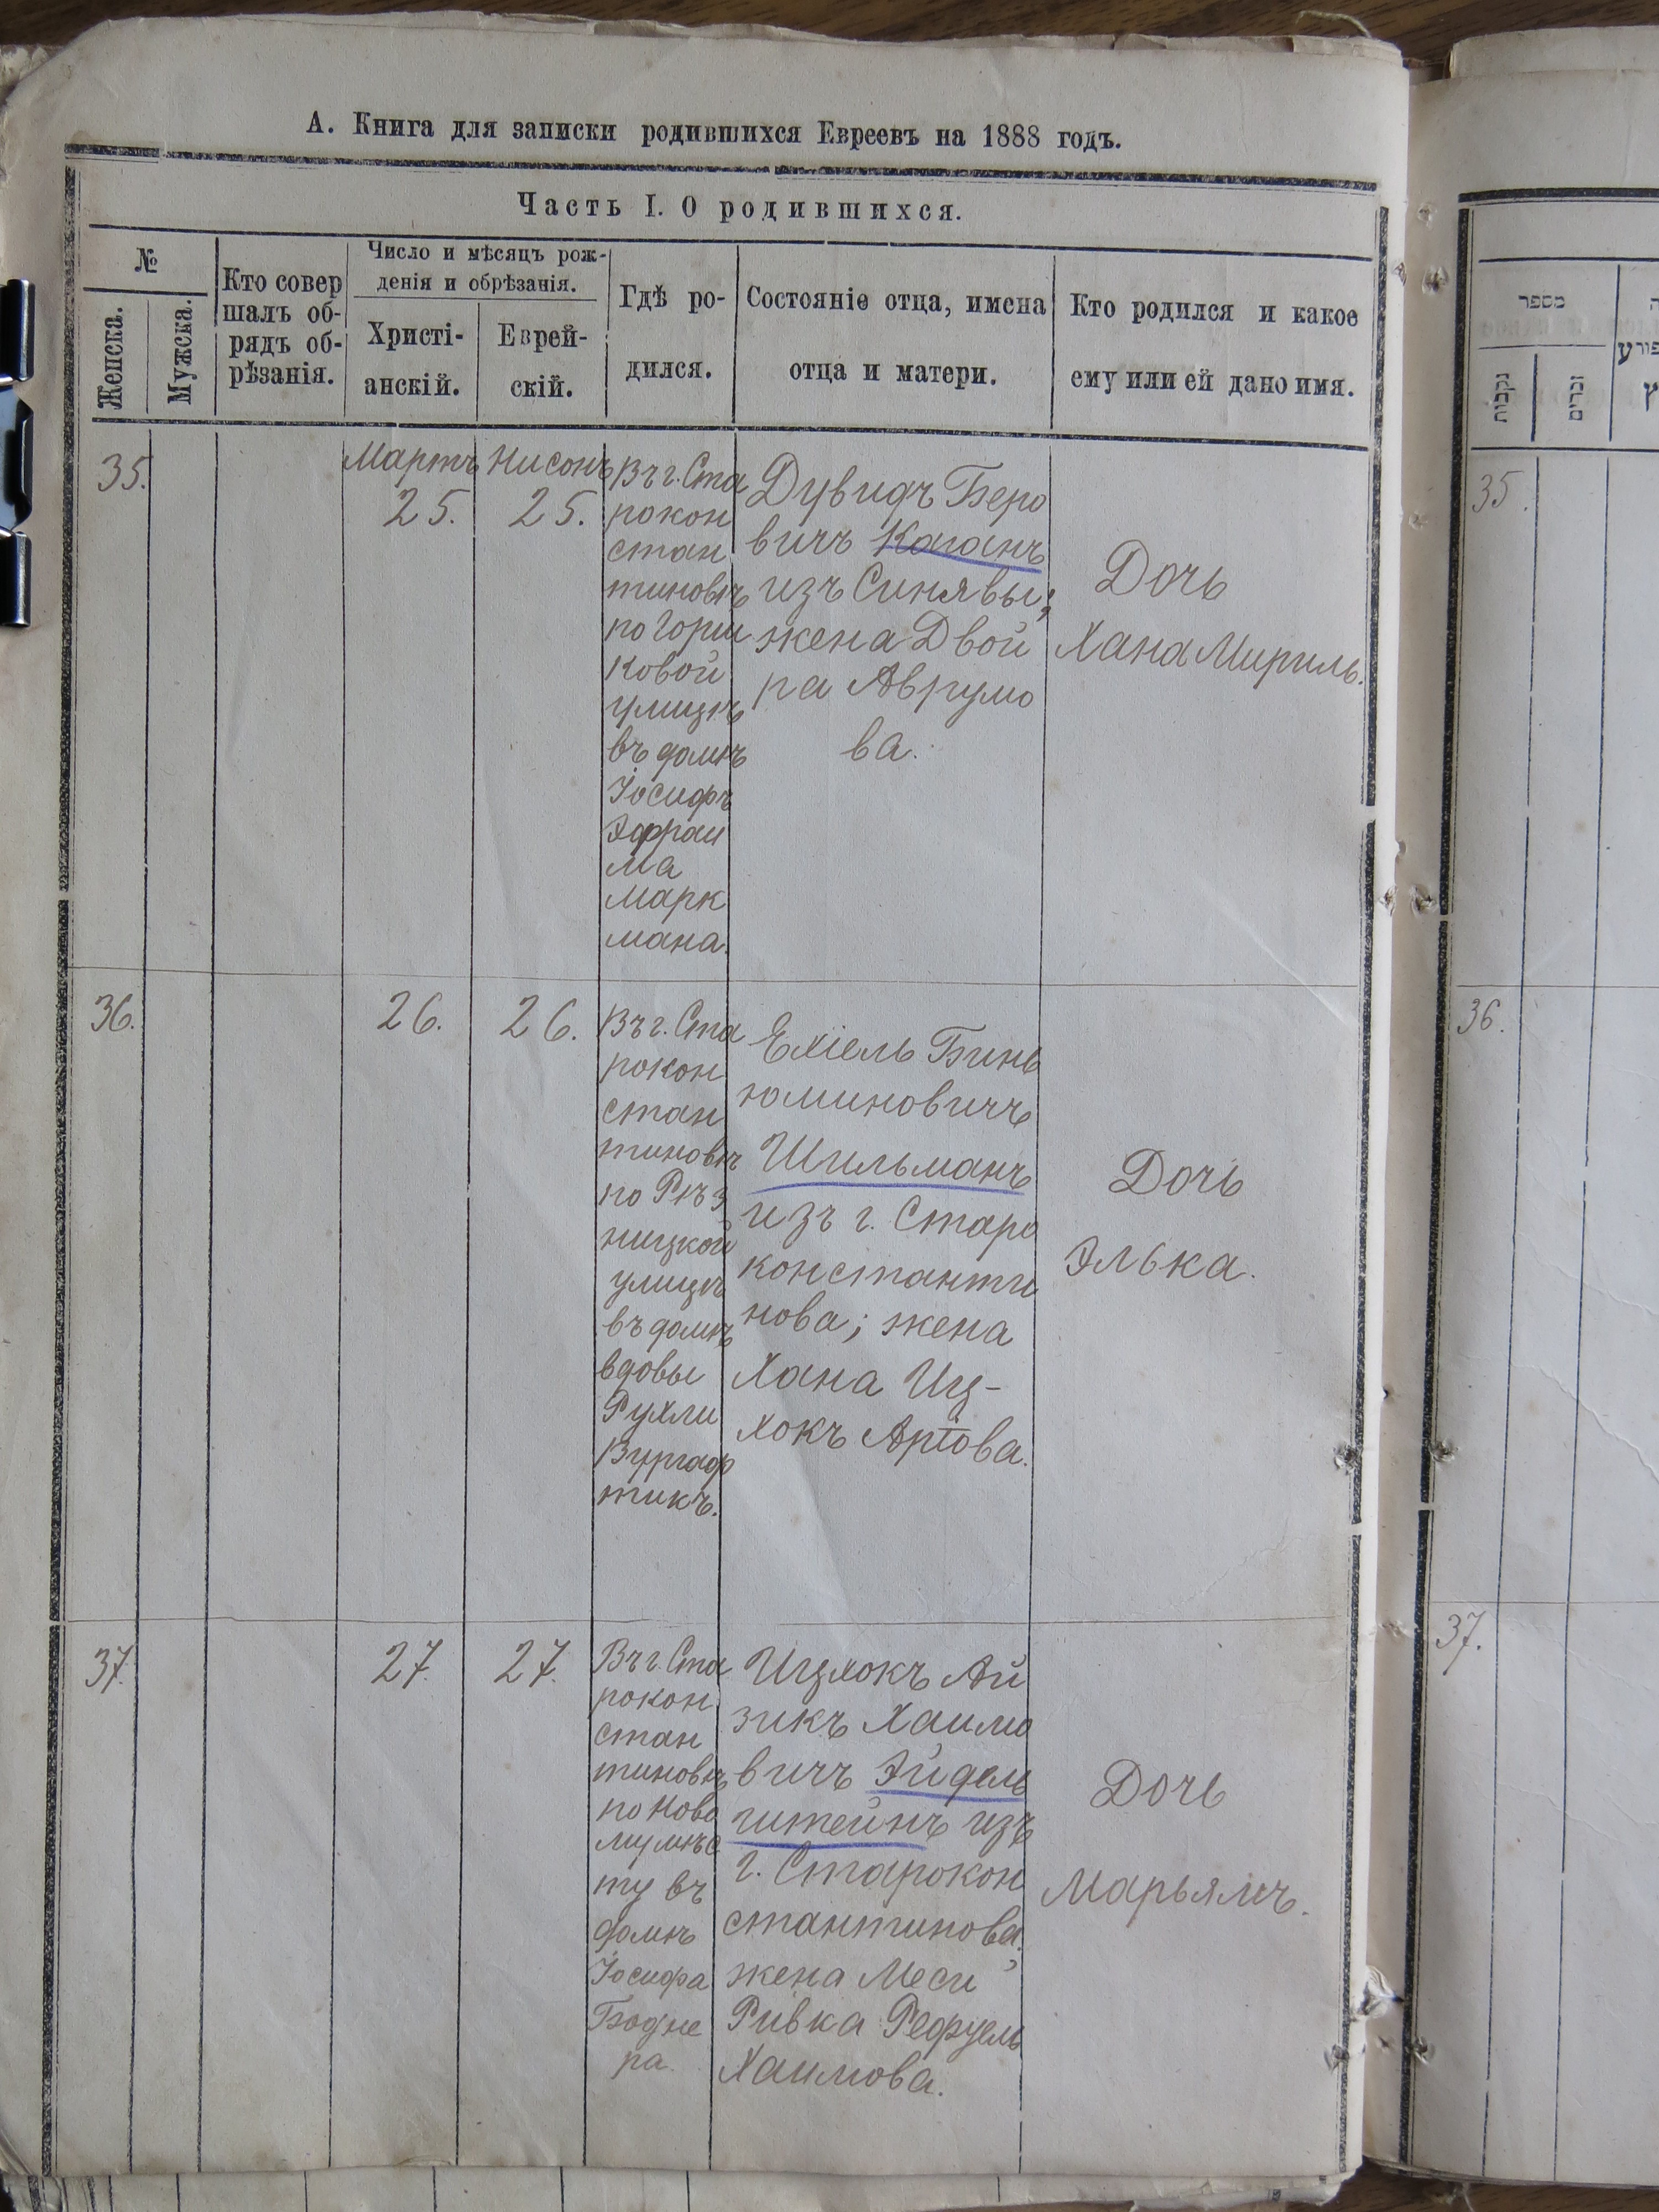 А. Книга для записки родившихся Евреевъ на 1888 годъ.
Часть I. О родившихся.
№
Женска.
Мужска.
Кто совер
шалъ об-
рядъ об-
рѣзанія.
Число и мѣсяцъ рож-
денія и обрѣзанія.
Христі-
анскій.
Еврей-
скій.
Гдѣ ро-
дился.
Состояніе отца, имена
отца и матери.
Кто родился и какое
ему или ей дано имя.
35.
Мартъ
25.
Нисонъ
25.
Въ г. Ста
рокон
стан
тиновѣ
по Горш
ковой
улицѣ
въ домѣ
Іосифъ
Эфраи
ма
Марк
мана.
Дувидъ Беро
вичъ Каганъ
изъ Синявы;
жена Двой
ра Аврумо
ва.
Дочь
Хана Мириль.
36.
26.
26.
Въ г. Ста
рокон
стан
тиновѣ
по Рѣз
ницкой
улицѣ
въ домѣ
вдовы
Рухли
Вургаф
тикъ.
Ехіель Бинь
юминовичъ
Шильманъ
изъ г. Старо
константи
нова; жена
Хана Иц-
хокъ Аріова.
Дочь
Элька.
37.
27.
27.
Въ г. Ста
рокон
стан
тиновѣ
по Ново
му мѣс
ту въ
домѣ
Іосифа
Бодне
ра.
Ицхокъ Ай
зикъ Хаимо
вичъ Эйдель
штейнъ изъ
г. Старокон
стантинова,
жена Меси
Ривка Рефуель
Хаимова.
Дочь
Марьямъ.
מספר
נקבות
זכרים
35.
36.
37.